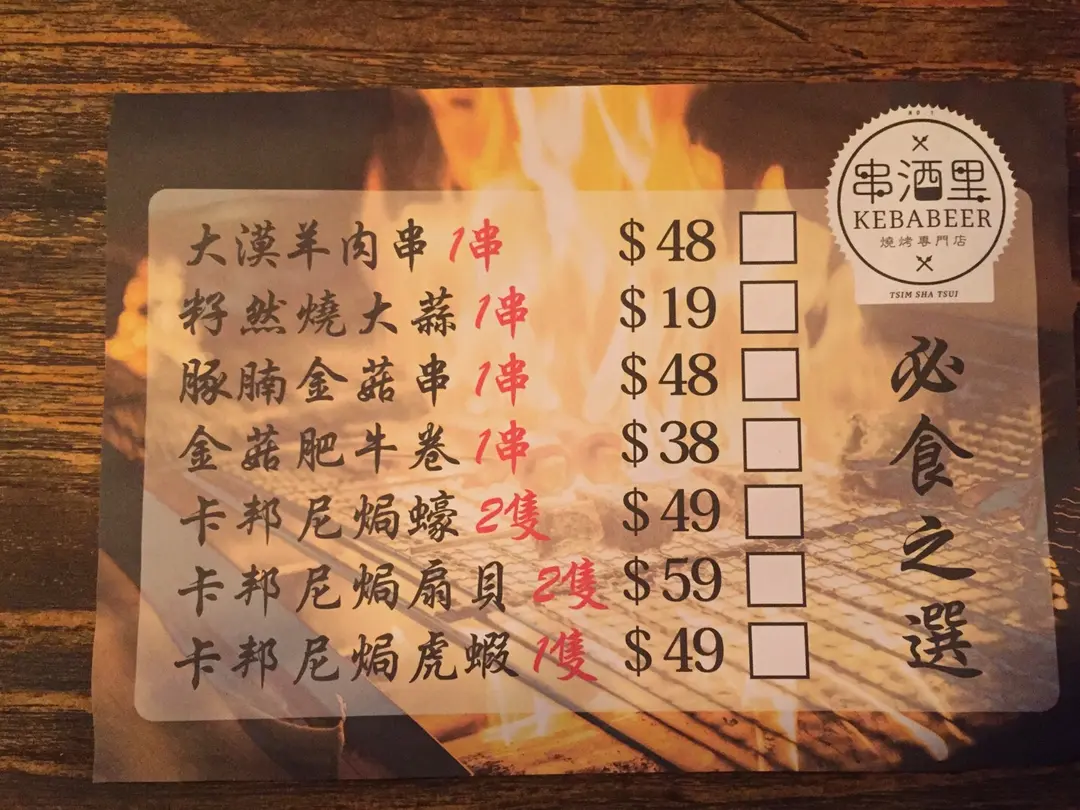 串酒里
KEBABEER
燒烤專門店
TSIM SHA TSUI
必食之選
大漠羊肉串 1串 $48
籽然燒大蒜 1串 $19
豚腩金菇串 1串 $48
金菇肥牛卷 1串 $38
卡邦尼焗蠔 2隻 $49
卡邦尼焗扇貝 2隻 $59
卡邦尼焗虎蝦 1隻 $49